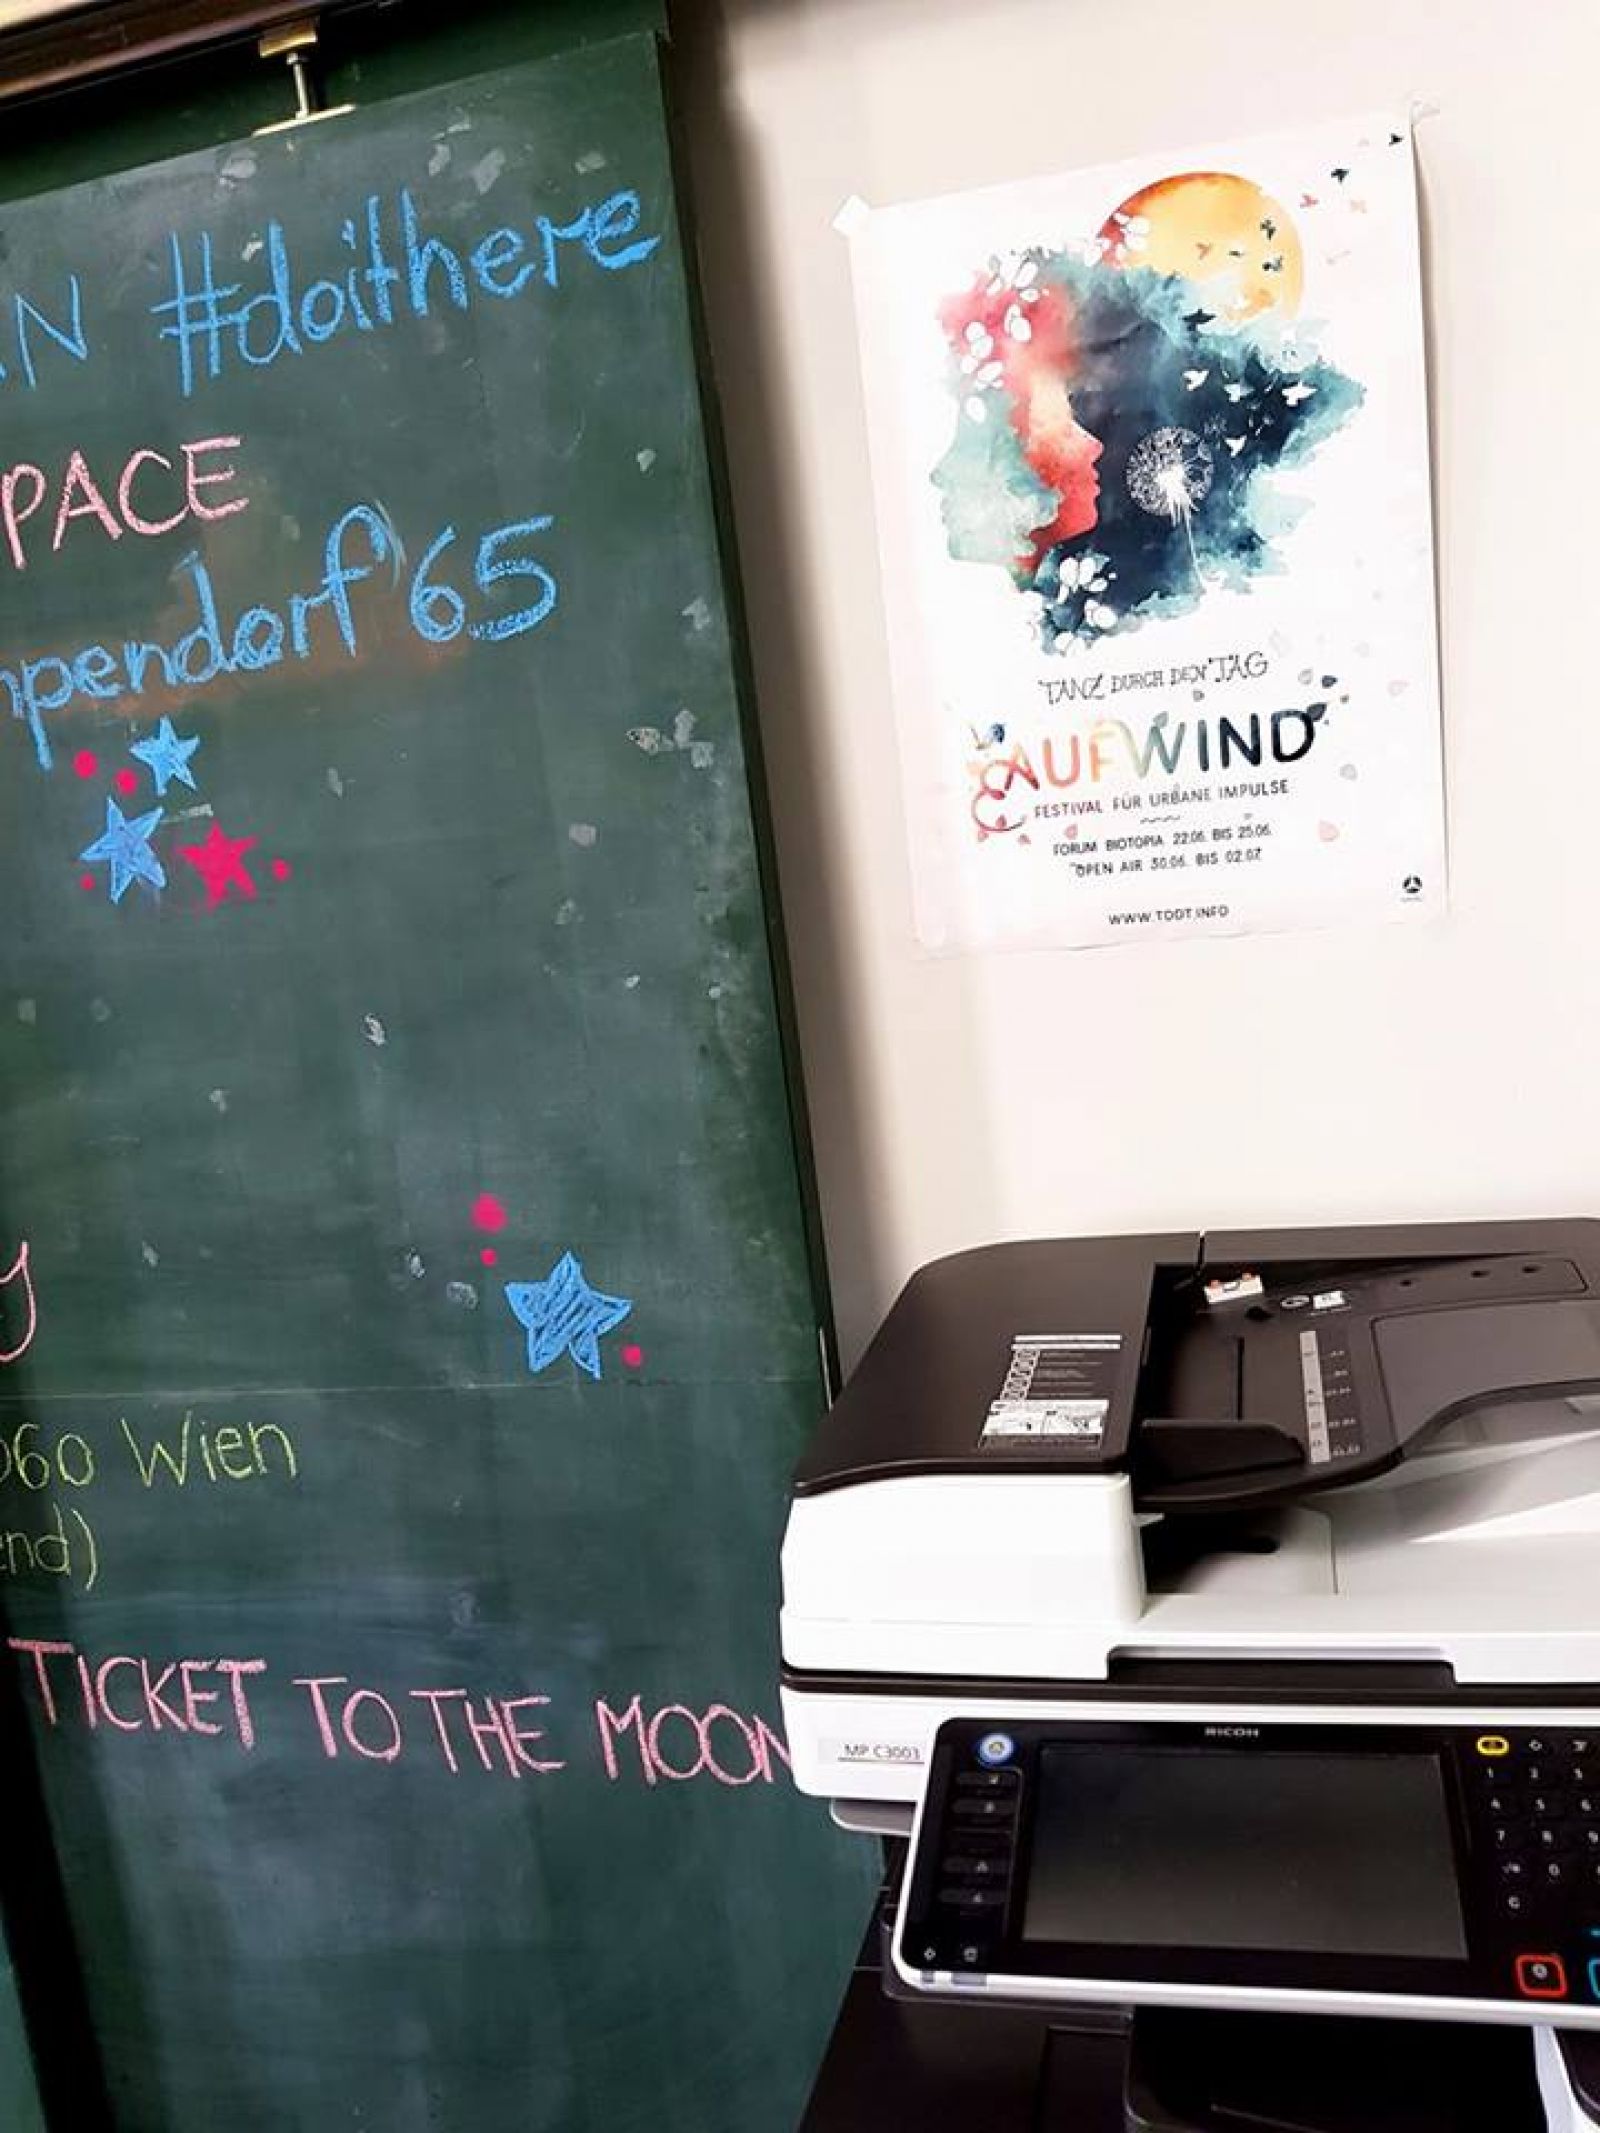 #doithere
PACE
pendorf 65
060 Wien
end)
TICKET TO THE MOON
TANZ DURCH DEN TAG
AUFWIND
FESTIVAL FÜR URBANE IMPULSE
FORUM BIOTOPIA 22.06. BIS 25.06.
OPEN AIR 30.06. BIS 02.07.
WWW.TDDT.INFO
RICOH
MP C3003
1 2 3
4 5 6
7 8 9
0
C